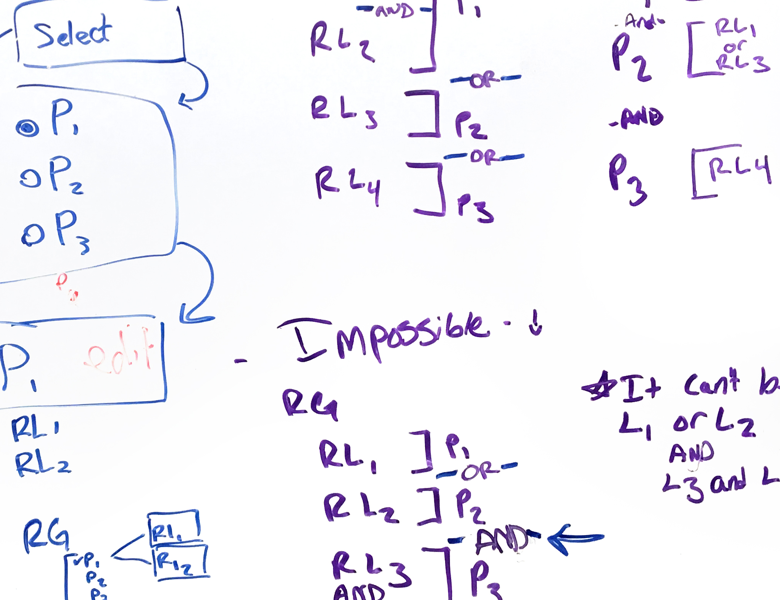 Select
P1
P2
P3
P3
P1 edit
RL1
RL2
RG
P1
P2
P3
RL1
RL2
-AND-
P1
RL2
-OR-
RL3
P2
-OR-
RL4
P3
-And-
P2
RL1
or
RL3
-AND
P3
RL4
- Impossible - ↓
RG
RL1
P1
-OR-
RL2
P2
-AND- ←
RL3
P3
AND
☆It can't b
L1 or L2
AND
L3 and L